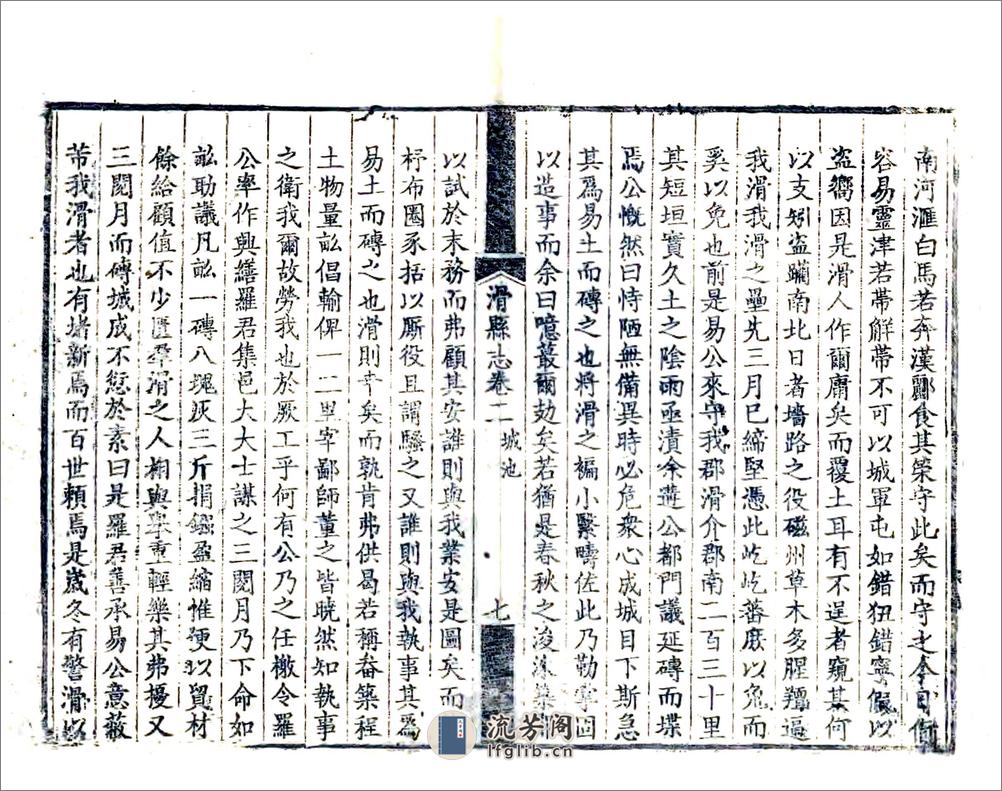 南河滙白馬若奔漢酈食其榮守此矣而守之今日何
容易靈津若帶解帶不可以城軍屯如錯狃錯寧假以
盗嚮因是滑人作爾庸矣而覆土耳有不逞者窺其何
以支矧盗躪南北日者墻路之役磁州草木多腥羶逼
我滑我滑之壘先三月已締堅憑此屹屹蕃庶以免而
奚以免也前是易公來守我郡滑介郡南二百三十里
其短垣實久土之陰雨亟漬余遮公都門議延磚而堞
焉公慨然曰恃陋無備異時必危衆心成城目下斯急
其爲易土而磚之也將滑之褊小緊疇佐此乃勒寧回
以造事而余曰噫蕞爾劫矣若猶是春秋之浚洙築
滑縣志卷二 城池 七
以試於末務而弗顧其安誰則與我業安是圖矣而
杼布圈豕括以厮役且謂騷之又誰則與我執事其爲
易土而磚之也滑則幸矣而孰肯弗供曷若稱畚築程
土物量訟倡輸俾一二里宰鄙師董之皆曉然知執事
之衛我爾故勞我也於厥工乎何有公乃之任檄令羅
公率作興繕羅君集邑大大士謀之三閱月乃下命如
訟助議凡訟一磚八瑰灰三斤捐鏹盈縮惟便以貿材
餘給顧值不少匿尋滑之人相與擧重輕樂其弗擾又
三閱月而磚城成不愆於素曰是羅君善承易公意蔽
芾我滑者也有堵新焉而百世頼焉是嵗冬有警滑以
流芳阁
lfglib.cn